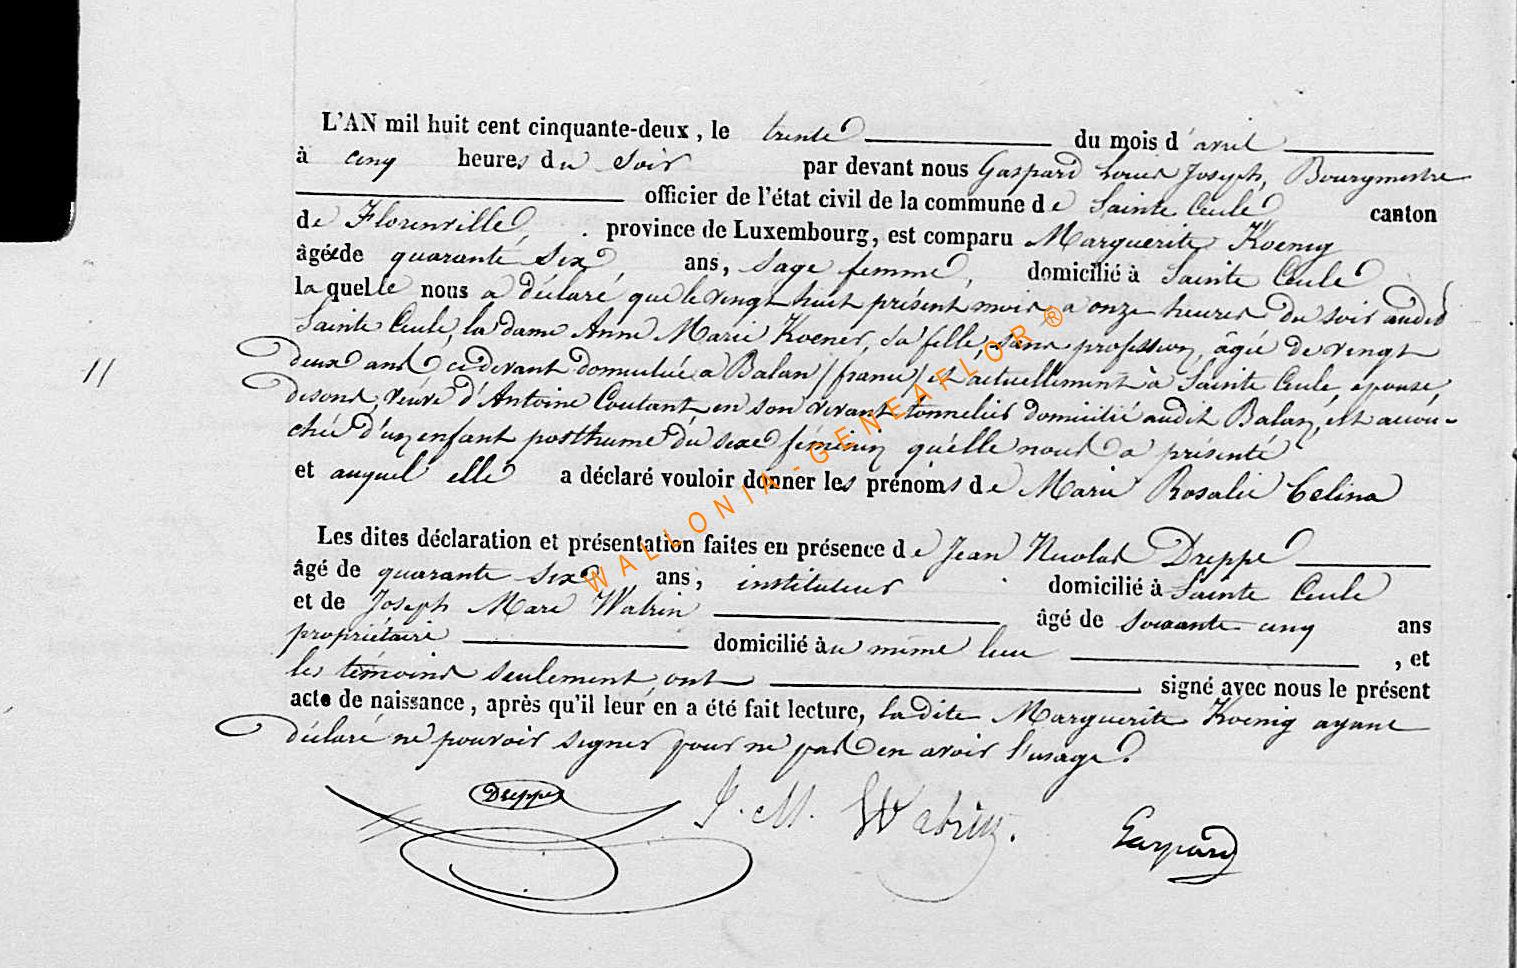 L'AN mil huit cent cinquante-deux, le trente du mois d'avril
à cinq heures du soir par devant nous Gaspard Louis Joseph, Bourgmestre
officier de l'état civil de la commune de Sainte Cécile canton
de Florenville, province de Luxembourg, est comparu Marguerite Koenig
âgée de quarante six ans, sage femme, domicilié à Sainte Cécile
laquelle nous a déclaré que le vingt huit présent mois a onze heures du soir audit
Sainte Cécile, la dame Anne Marie Koener, sa fille, sans profession, âgée de vingt
deux ans, ci devant domiciliée a Balan (france) et actuellement à Sainte Cécile, épouse
veuve d'Antoine Coutant en son vivant tonnelier domicilié audit Balan, est accou-
chée d'un enfant posthume du sexe féminin qu'elle nous a présenté
et auquel elle a déclaré vouloir donner les prénoms de Marie Rosalie Celina
Les dites déclaration et présentation faites en présence de Jean Nicolas Dreppe
âgé de quarante six ans, instituteur domicilié à Sainte Cécile
et de Joseph Marc Watrin âgé de soixante cinq ans
propriétaire domicilié au même lieu , et
les témoins seulement ont signé avec nous le présent
acte de naissance, après qu'il leur en a été fait lecture, la dite Marguerite Koenig ayant
déclaré ne pouvoir signer pour ne pas en avoir l'usage.
11
Dreppe J. M. Watrin. Gaspard
WALLONIA-GENEAFLOR®